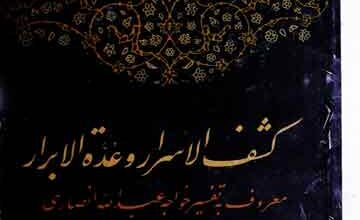 کشف الاسرار و عدة الابرار
معروف بتفسیر خواجه عبدالله انصاری